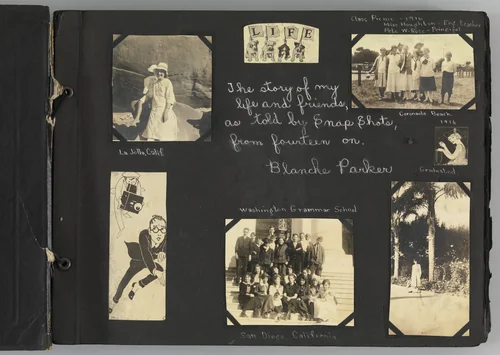 LIFE
Class Picnic - 1916
Miss Houghton - Our Teacher
Pete W. Ross - Principal
Coronado Beach
1916
Graduated
La Jolla, Calif.
The story of my
life and friends,
as told by Snap Shots,
from fourteen on.
Blanche Parker
Washington Grammar School
San Diego, California